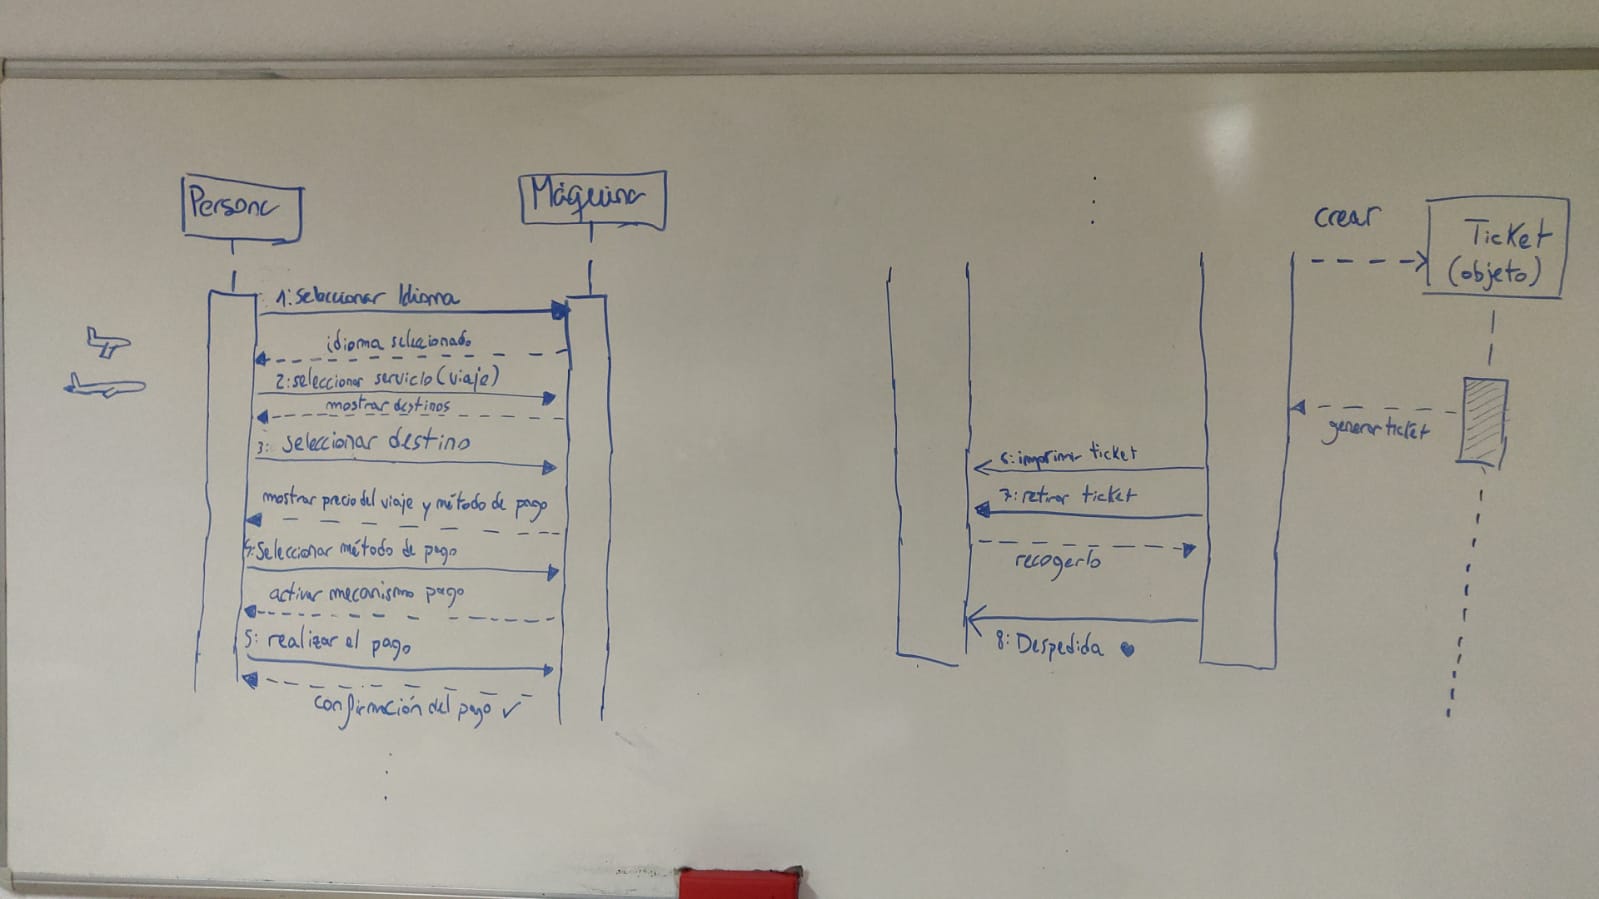 Persona
Máquina
1: seleccionar Idioma
idioma selecionado
2: seleccionar servicio (viaje)
mostrar destinos
3: seleccionar destino
mostrar precio del viaje y método de pago
4: Seleccionar método de pago
activar mecanismo pago
5: realizar el pago
confirmación del pago ✓
crear
Ticket
(objeto)
generar ticket
6: imprimir ticket
7: retirar ticket
recogerlo
8: Despedida ♥